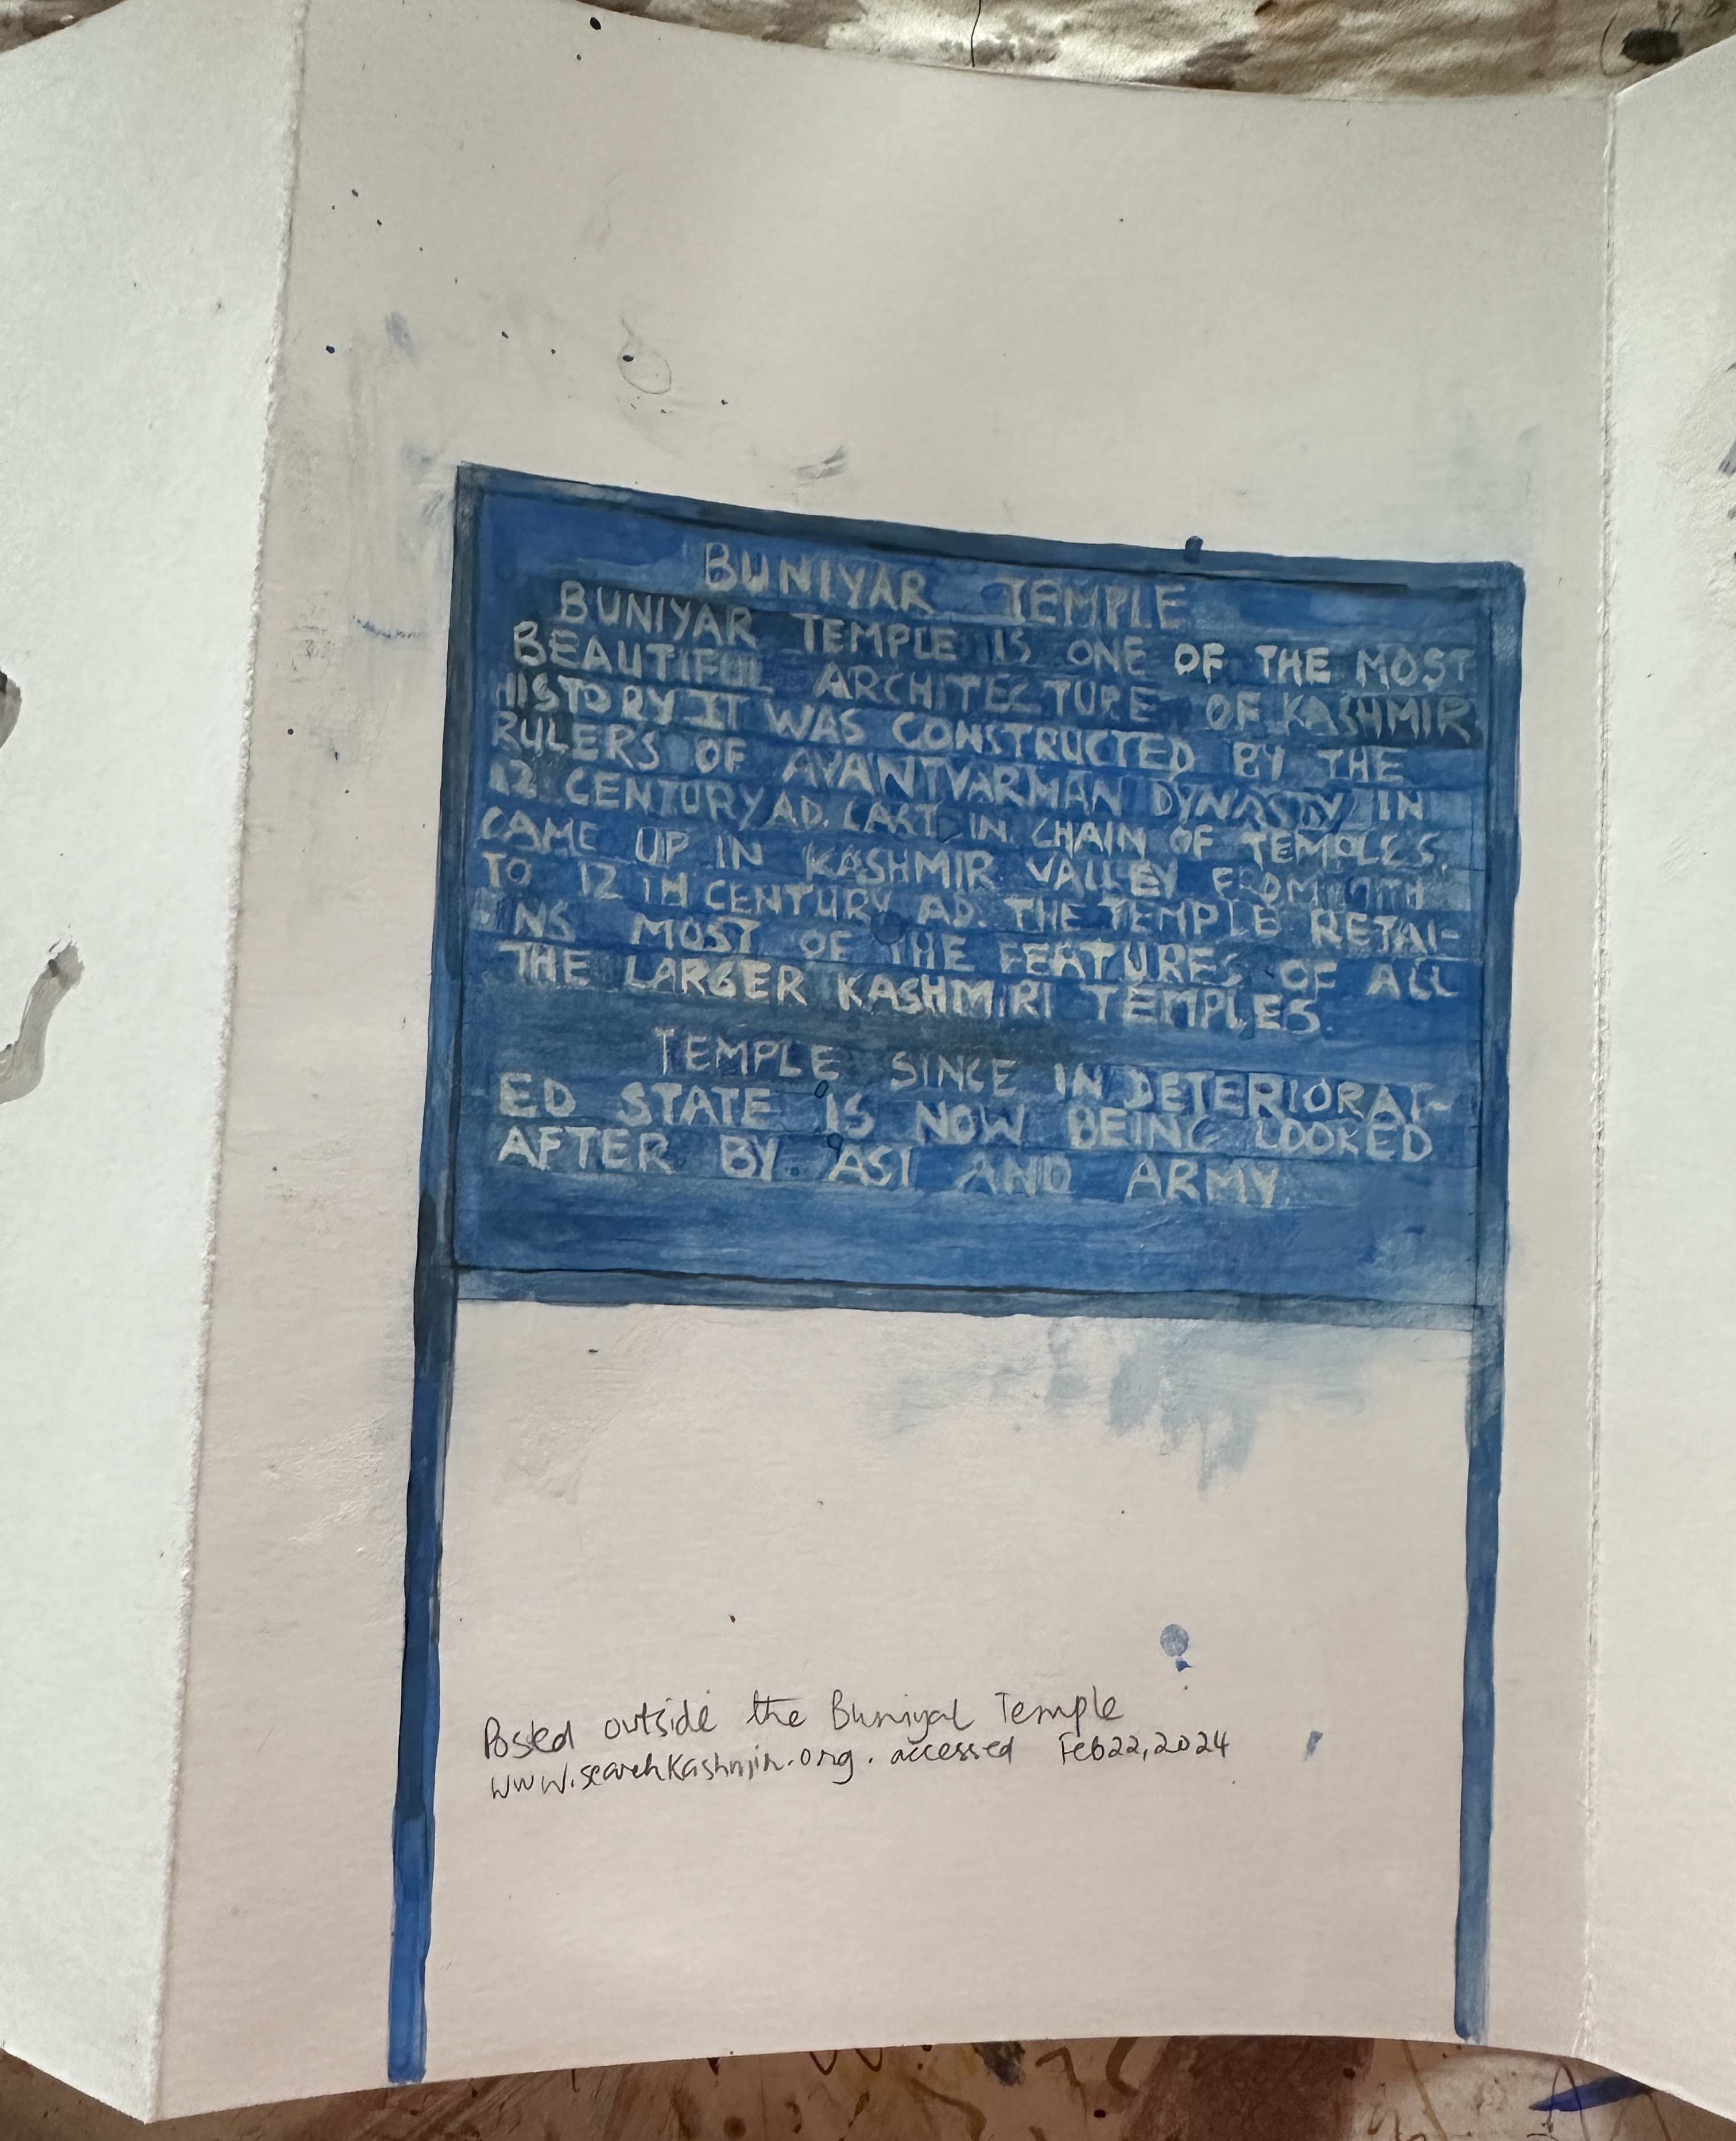 BUNIYAR TEMPLE
BUNIYAR TEMPLE IS ONE OF THE MOST
BEAUTIFUL ARCHITECTURE OF KASHMIR
HISTORY IT WAS CONSTRUCTED BY THE
RULERS OF AVANTVARMAN DYNASTY IN
12 CENTURY AD. LAST IN CHAIN OF TEMPLES.
CAME UP IN KASHMIR VALLEY FROM 9TH
TO 12 TH CENTURY AD. THE TEMPLE RETAI-
INS MOST OF THE FEATURES OF ALL
THE LARGER KASHMIRI TEMPLES.
TEMPLE SINCE IN DETERIORAT-
ED STATE IS NOW BEING LOOKED
AFTER BY ASI AND ARMY.
Posted outside the Buniyal Temple
www.searchkashmir.org. accessed Feb 22, 2024